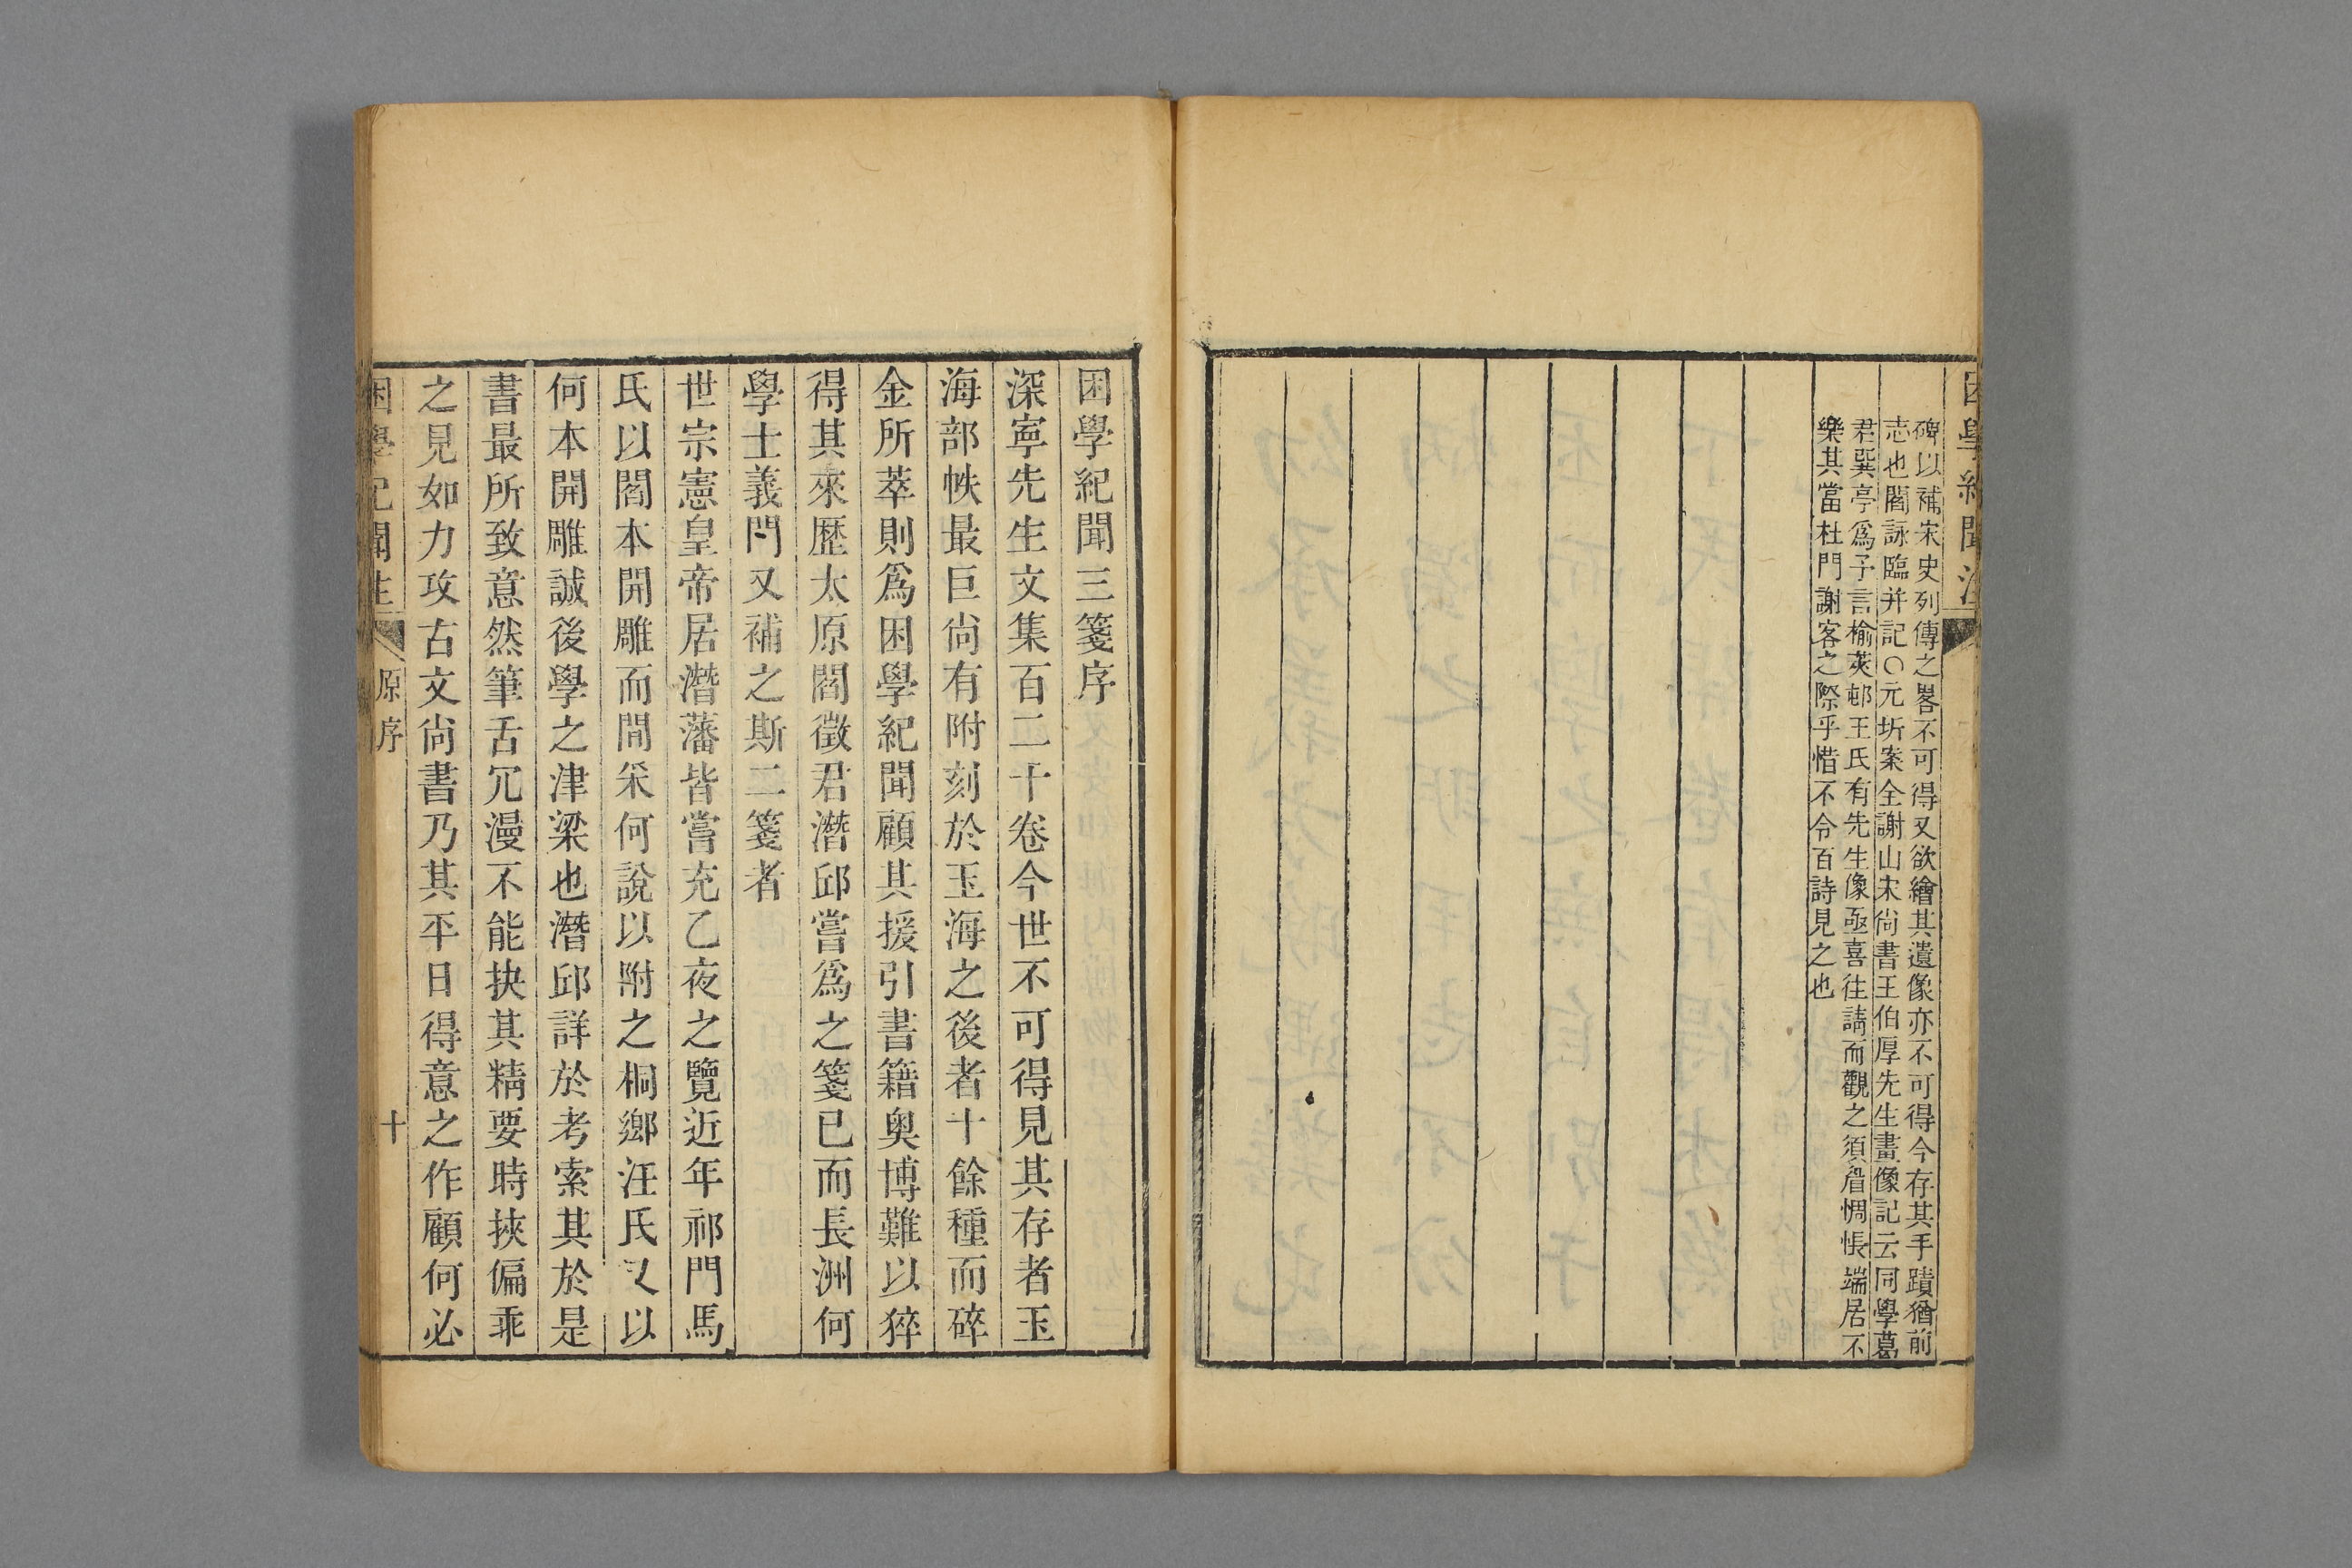 困學紀聞注
碑以補宋史列傳之畧不可得又欲繪其遺像亦不可得今存其手蹟猶前
志也閻詠臨并記○元圻案全謝山宋尚書王伯厚先生畫像記云同學葛
君巽亭爲予言榆莢邨王氏有先生像亟喜往請而觀之須眉惆悵端居不
樂其當杜門謝客之際乎惜不令百詩見之也
困學紀聞三箋序
深寧先生文集百二十卷今世不可得見其存者玉
海部帙最巨尙有附刻於玉海之後者十餘種而碎
金所萃則爲困學紀聞顧其援引書籍奥博難以猝
得其來歷太原閻徵君潛邱嘗爲之箋已而長洲何
學士義門又補之斯二箋者
世宗憲皇帝居潛藩皆嘗充乙夜之覽近年祁門馬
氏以閻本開雕而間采何說以附之桐鄉汪氏又以
何本開雕誠後學之津梁也潛邱詳於考索其於是
書最所致意然筆舌冗漫不能抉其精要時挾偏乖
之見如力攻古文尙書乃其平日得意之作顧何必
困學紀聞注 原序 十